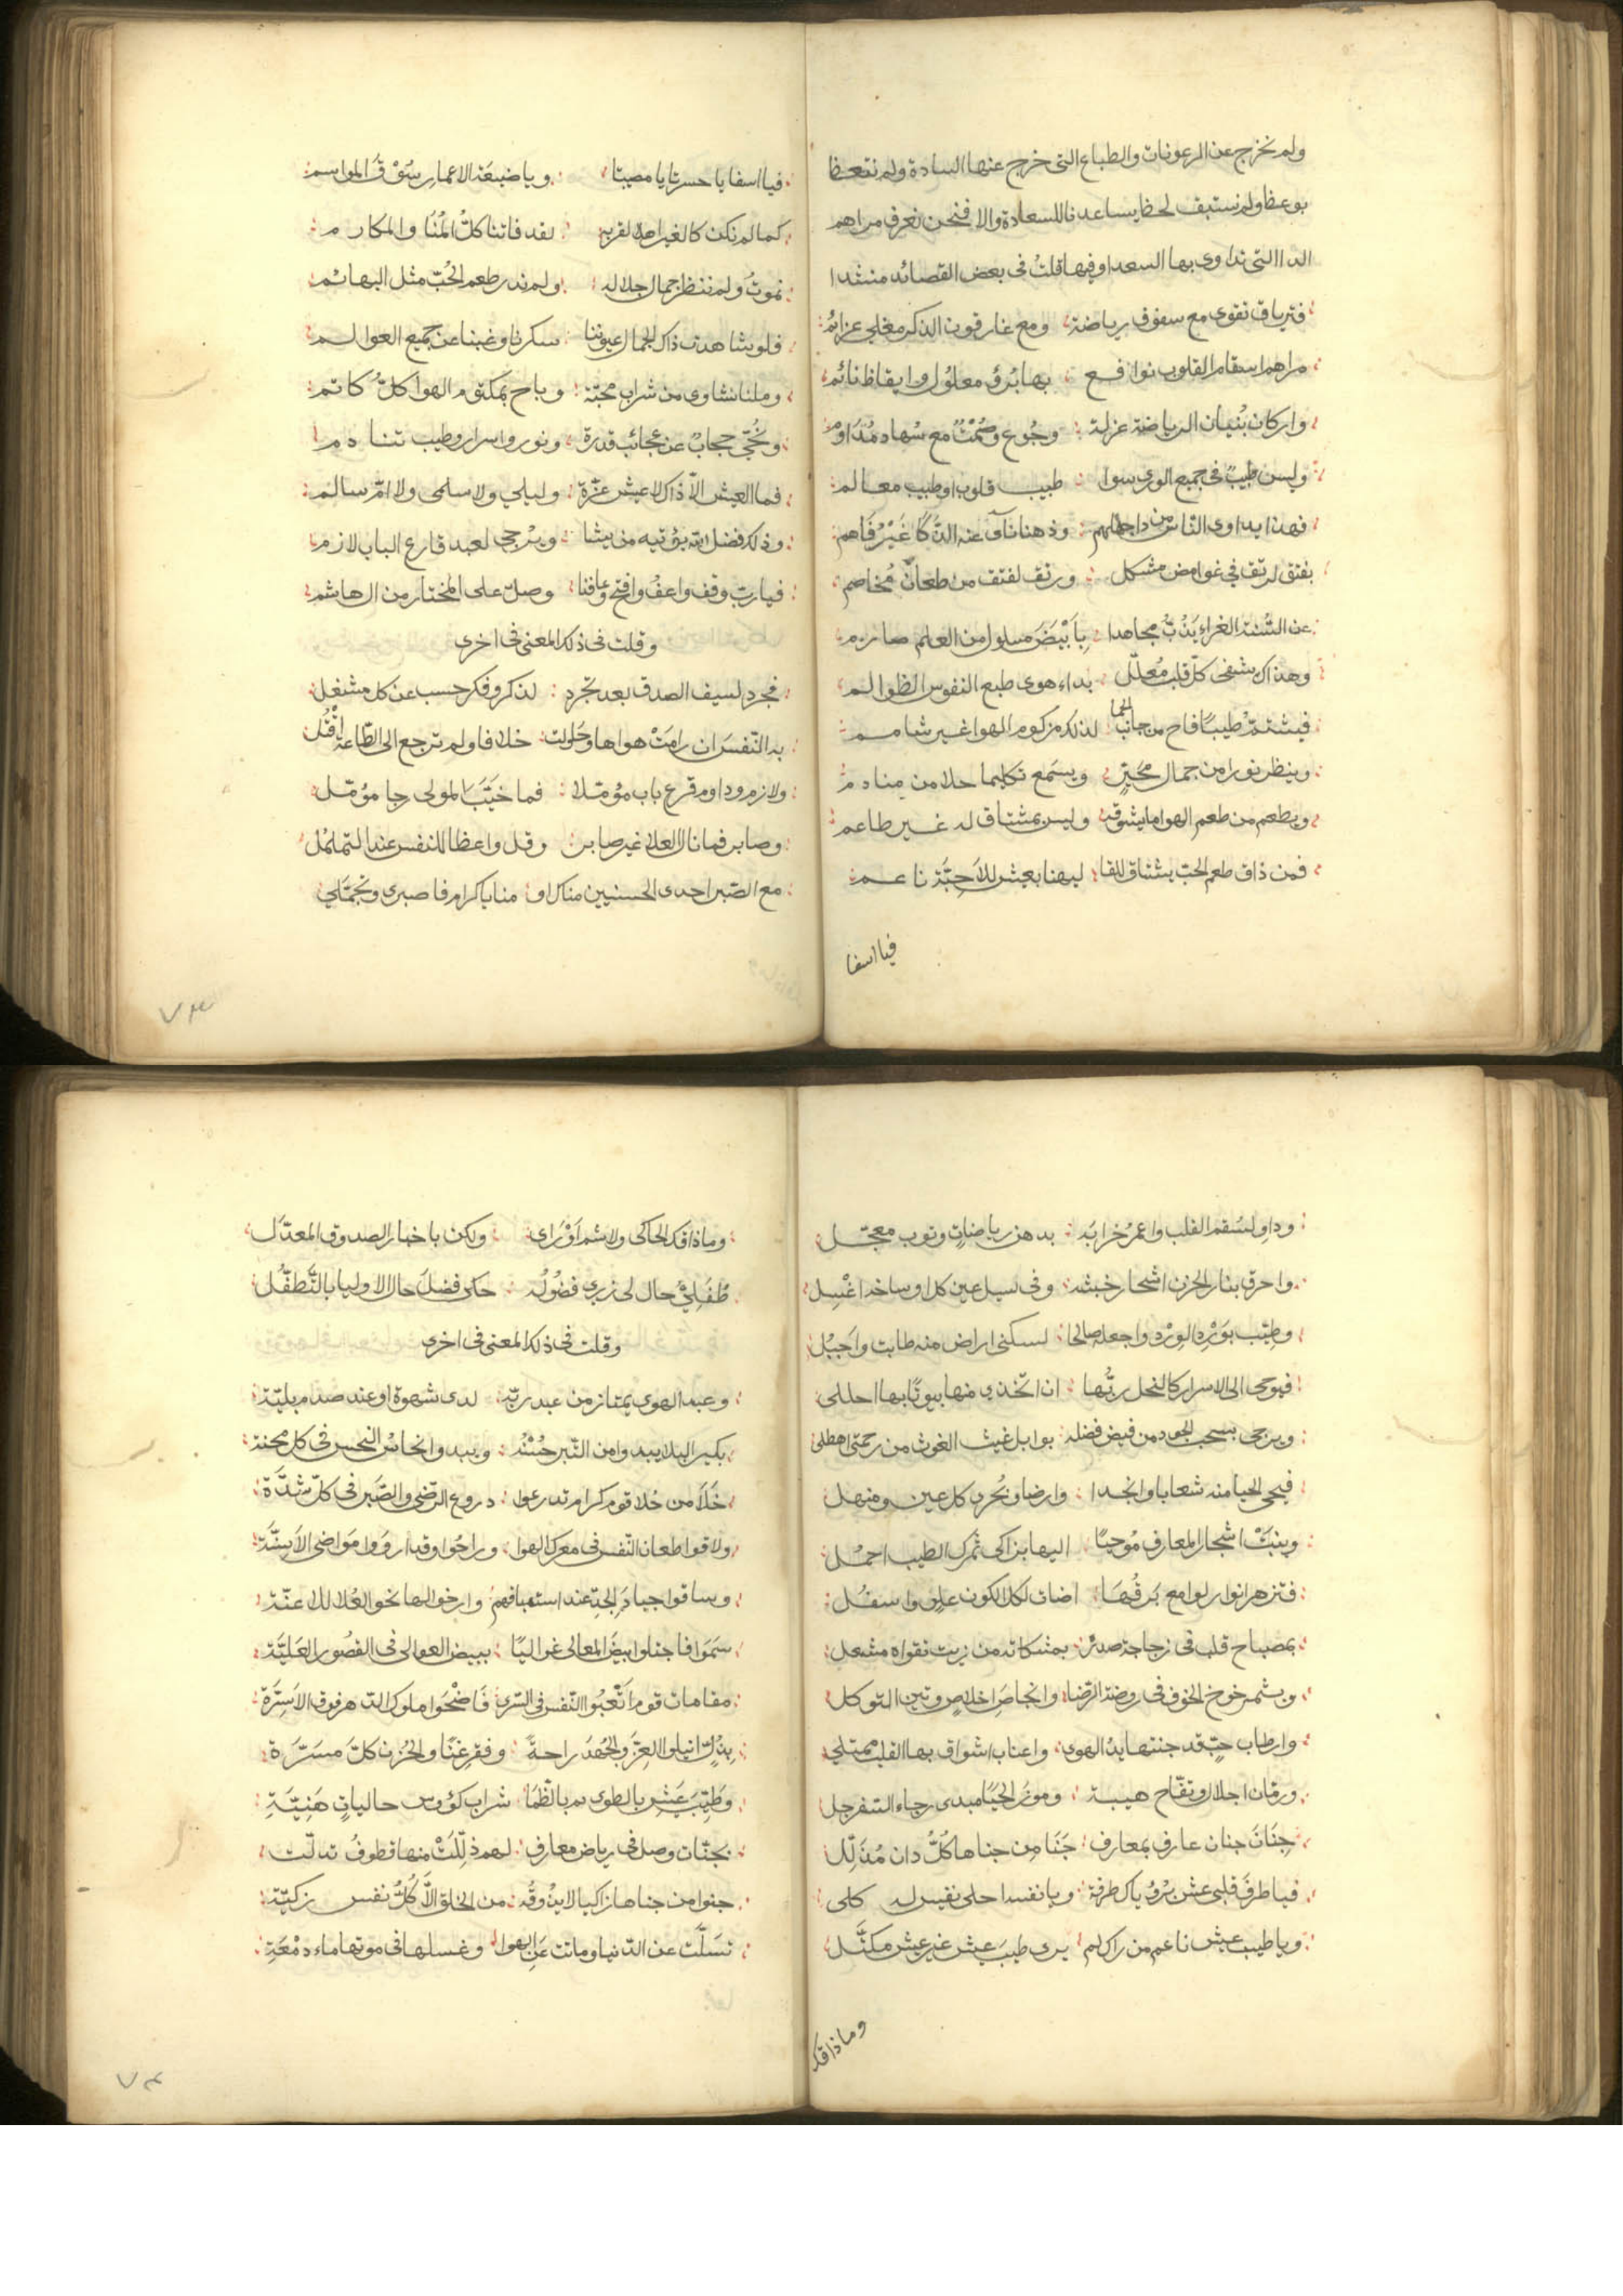 ولم نخرج عن الرعونات والطباع التي خرج عنها السادة ولم نتعظا
بوعظ ولم نستبف لحظا يساعدنا للسعادة والا فنحن نعرف مراهم
الدا التي نداوى بها السعدا وفيها قلت فى بعض القصائد منشدا
فترياق تقوى مع سفوف رياضة ومع غارقون الذكر مغلي عزائم
مراهم اسقام القلوب نوافع بها برؤ معلول وايقاظ نائم
واركان بنيان الرياضة عزلة وجوع وصمت مع سهاد مداوم
وليس طبيب فى جميع الورى سوا طبيب قلوب او طبيب معالم
فهذا يداوى الناس من دا جهلهم وذهنا نآى عنه الذكا غير فاهم
بفتق لرتق في غوامض مشكل ورتق لفتق من طعان مخاصم
عن السنة الغراء يذب مجاهدا بابيض مسلول من العلم صارم
وهذاك يشفى كل قلب معلل بداء هوى طبع النفوس الظوالم
فيشتم طيبا فاح من جانب الحما لذلك مزكوم الهوا غير شامم
وينظر نورا من جمال محير ويسمع تكليما حلا من منادم
ويطعم من طعم الهوا ما يشوقه وليس بمشتاق له غير طاعم
فمن ذاق طعم الحب يشتاق للقا ليهنا بعيش للاحبة ناعم
فيا اسفا
فيا اسفا يا حسرتا يا مصيبتا ويا ضيعة الاعمار سوق المواسم
كما لم نكن كالغير اهلا لقربه لقد فاتنا كل المنا والمكارم
نموت ولم ننظر جمال جلاله ولم ندر طعم الحب مثل البهائم
فلو شاهدت ذاك الجمال عيوننا سكرنا وغبنا عن جميع العوالم
وملنا نشاوى من شراب محبة وباح بمكتوم الهوا كل كاتم
ونحي حجاب عن عجائب قدرة ونور واسرار وطيب تنادم
فما العيش الا ذاك لا عيش عزة وليلي ولا سلمى ولا ام سالم
وذلك فضل الله يؤتيه من يشا ويرجى لعبد قارع الباب لازم
فيا رب وفق واعف وافتح وعافنا وصل على المختار من ال هاشم
وقلت فى ذلك المعنى فى اخرى
فجرد لسيف الصدق بعد تجرد لذكر وفكر حسب عن كل مشغل
به النفس ان رامت هواها وحاولت خلافا ولم ترجع الى الطاعة اقتل
ولازم وداوم قرع باب مؤملا فما خيب المولى رجا مؤمل
وصابر فما نال العلا غير صابر وقل واعظا للنفس عند التململ
مع الصبر احدى الحسنيين مناك او منايا كرام فاصبرى وتجملي
٧٣
وداو لسقم القلب واعمر خرابه بدهن رياضات وتوب معجل
واحرق بنار الحزن اشجار خبثه وفى سيل عين كل اوساخه اغسل
وطيب بورد الورد واجعله صالحا لسكنى اراض منه طابت واجبل
فيوحى الى الاسرار كالنحل ربها ان اتخذي منها بيوتا بها احللى
ويرجى بسحب الجود من فيض فضله بوابل غيث الغوث من رحمتى اهطلى
فيحي الحيا منه شعابا وانجدا وارضا وبحرى كل عين ومنهل
وينبت اشجار المعارف موحيا اليها بزاكى ثمرك الطيب احمل
فتزهر انوار لوامع برقها اضات لكل الكون علو واسفل
بمصباح قلب فى زجاجة صدره بمشكاته من زيت تقواه مشعل
ويثمر خوخ الخوف فى روضة الرضا وانجاص اخلاص وتين التوكل
وارطاب حب قد جنتها يد الهوى واعناب اشواق بها القلب ممتلي
ورمان اجلال وتفاح هيبة وموز الحيا مبدى رجاء السفرجل
جنان جنان عارف بمعارف جنا من جناها كل دان مذلل
فيا طرف قلبى عش برؤياك طرفة ويا نفس احلى نفيس له كلى
ويا طيب عيش ناعم من راك لم يرى طيب عيش غير عيش مكمل
وما ذاقك
وما ذاقك الحاكى ولا شم او راى ولكن باخبار الصدوق المعدل
طفيلي حال لى زرى فضوله حكى فضل حال الاوليا بالتطفل
وقلت فى ذلك المعنى فى اخرى
وعبد الهوى يمتاز من عبد ربه لدى شهوة او عند صدم بلية
بكير البلا يبدو من التبر حسنه ويبدو انحاس النحس فى كل محنة
خلا من خلا قوم كرام تدرعوا دروع الرضى والصبر فى كل شدة
ولاقوا طعان النفس فى معرك الهوا وراحوا وقد ارووا مواضى الاسنة
وساقوا جياد الجد عند استباقهم وارخوا لها نحو العلا للاعنة
سموا فاجتلوا بيض المعالى غواليا ببيض العوالى فى القصور العلية
مقامات قوم اتعبوا النفس فى السرى فاضحوا ملوك الدهر فوق الاسرة
بذل انبلوا العز والجهد راحة وفقر غنا والحزن كل مسرة
وطيب عيش بالطوى ثم بالظما شراب كؤوس حاليات هنية
بجنات وصل فى رياض معارف لهم ذللت منها قطوف تدلت
جنوا من جناها زاكيا لا يذوقه من الخلق الا كل نفس زكية
تسلت عن الدنيا وماتت عن الهوا وغسلها فى موتها ماء دمعة
٧٤